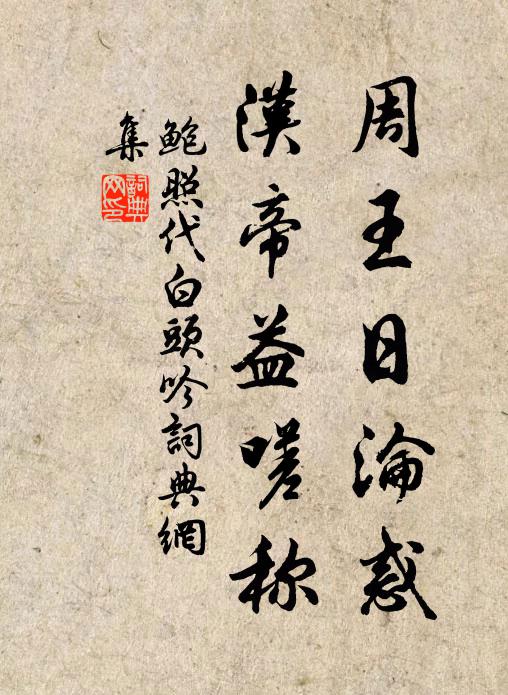 周王日淪惑
漢帝益嗟称
鮑照代白頭吟詞典網
集
詞典
网印